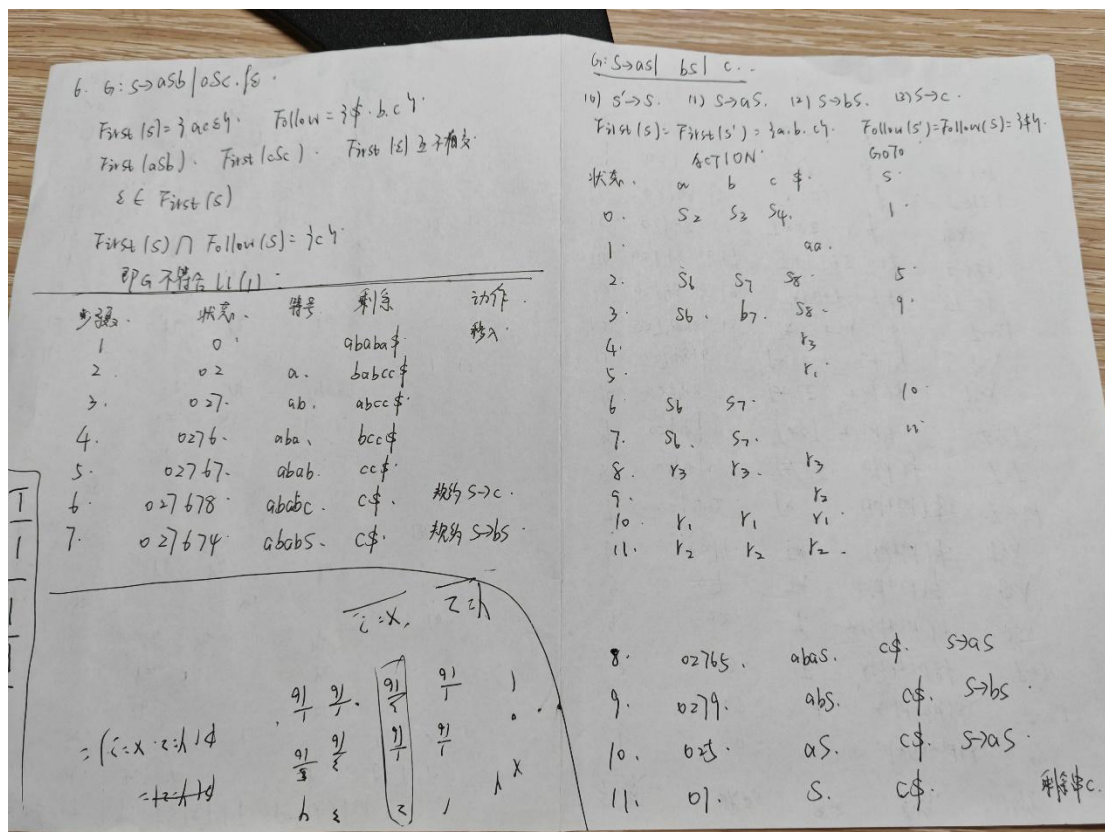 6. G: S→aSb | aSc | ε
First(S)={a c ε}. Follow={$. b. c}.
First(aSb). First(cSc). First(ε) 互不相交.
ε ∈ First(S)
First(S) ∩ Follow(S)={c}.
即G不符合LL(1)
步骤. 状态. 符号 剩余 动作.
1 0 ababa$ 移入.
2. 02 a. babcc$
3. 027. ab. abcc$.
4. 0276. aba. bcc$
5. 02767. abab. cc$.
6 027678 ababc. c$. 规约 S→c.
7. 027674 ababS. c$. 规约 S→bS
G: S→aS| bS| c..
(0) S'→S. (1) S→aS. (2) S→bS. (3) S→c.
First(S)=First(S')={a.b.c}. Follow(S')=Follow(S)={$}.
ACTION. GOTO
状态. a b c $. S.
0. S2 S3 S4. 1.
1. aa.
2. S6 S7 S8. 5
3. S6. b7. S8. 9
4. r3
5. r1.
6 S6 S7. 10.
7. S6. S7. 11
8. r3 r3. r3
9. r2
10. r1 r1 r1.
11. r2 r2 r2.
8. 02765. abaS. c$. S→aS
9. 0279. abS. c$. S→bS
10. 025. aS. c$. S→aS.
11. 01. S. c$. 剩余串c.
X Y 1 2 3 4
0 1/16 1/16 3/16
1 1/16 2/16 1/16 1/16
Y=2 X=i
P{Y=2=
P{Y=2. X=i}=